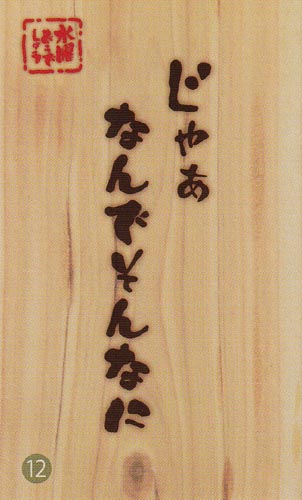 水曜
どうでしょう
じゃぁ
なんでそんなに
12